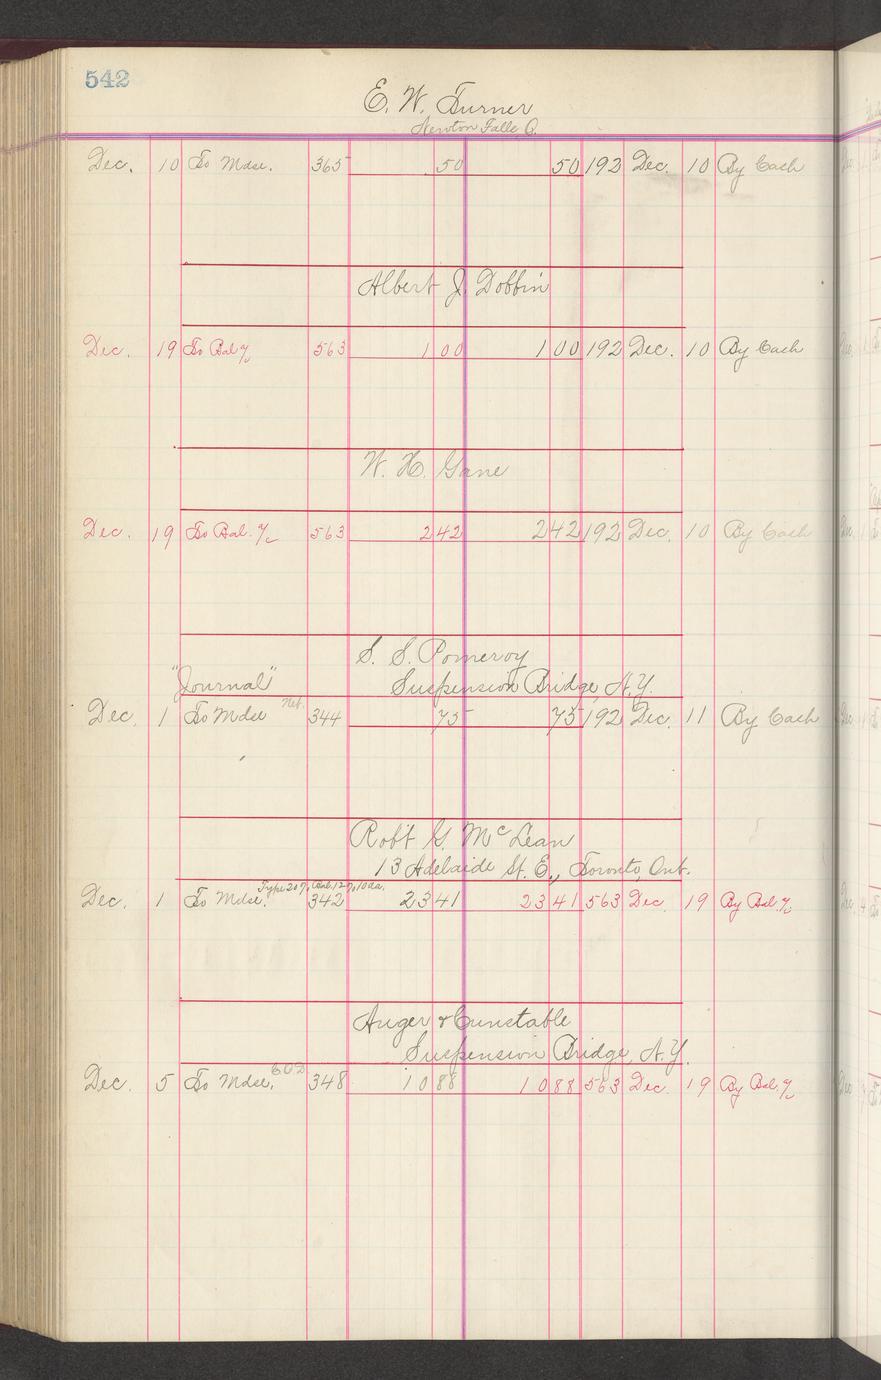 542
E. W. Turner
Newton Falls O.
Dec. 10 To Mdse. 365 50 50 192 Dec. 10 By Cash
Albert J. Dobbin
Dec. 19 To Bal % 563 1 00 1 00 192 Dec. 10 By Cash
W. H. Gane
Dec. 19 To Bal. % 563 2 42 2 42 192 Dec. 10 By Cash
S. S. Pomeroy
"Journal" Suspension Bridge, N.Y.
Net.
Dec. 1 To Mdse 344 75 75 192 Dec. 11 By Cash
Robt G. McLean
13 Adelaide St. E., Toronto, Ont.
Type 20%, 12%, 10 da.
Dec. 1 To Mdse. 342 23 41 23 41 563 Dec 19 By Bal. %
Auger & Cunstable
Suspension Bridge, N.Y.
COD
Dec. 5 To Mdse. 348 10 88 10 88 563 Dec. 19 By Bal. %